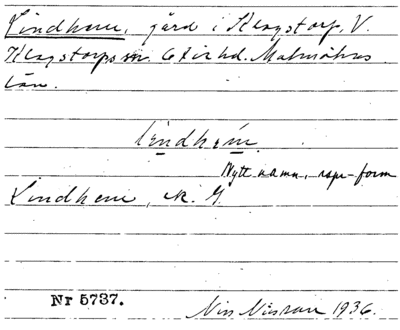 Lindhem, gård i Klagstorp, V.
Klagstorps sn. Oxie hd. Malmöhus
län.
lindhem
Nytt namn, rspr-form
Lindhem, K. G.
Nr 5737.
Nils Nilsson 1936.